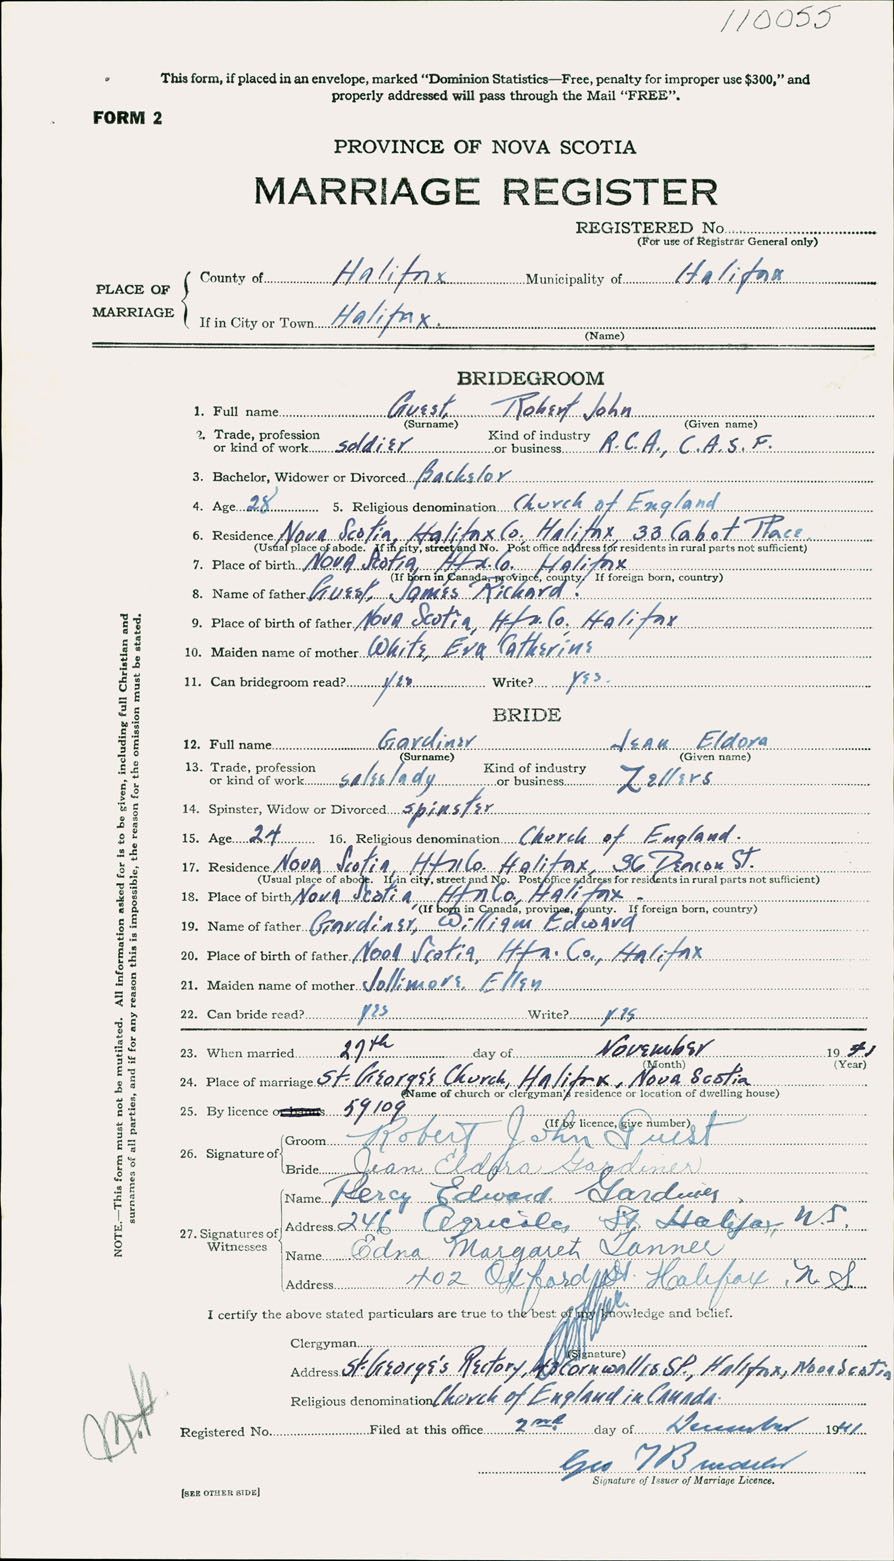 110055
This form, if placed in an envelope, marked “Dominion Statistics—Free, penalty for improper use $300,” and
properly addressed will pass through the Mail “FREE”.
FORM 2
PROVINCE OF NOVA SCOTIA
MARRIAGE REGISTER
REGISTERED No.
(For use of Registrar General only)
PLACE OF MARRIAGE
County of Halifax Municipality of Halifax
If in City or Town Halifax.
(Name)
BRIDEGROOM
1. Full name Guest, Robert John
(Surname) (Given name)
2. Trade, profession or kind of work soldier Kind of industry or business R.C.A., C.A.S.F.
3. Bachelor, Widower or Divorced Bachelor
4. Age 28 5. Religious denomination Church of England
6. Residence Nova Scotia, Halifax Co. Halifax, 33 Cabot Place.
(Usual place of abode. If in city, street and No. Post office address for residents in rural parts not sufficient)
7. Place of birth Nova Scotia, Hfx. Co. Halifax
(If born in Canada, province, county. If foreign born, country)
8. Name of father Guest, James Richard.
9. Place of birth of father Nova Scotia, Hfx. Co. Halifax
10. Maiden name of mother White, Eva Catherine
11. Can bridegroom read? yes Write? yes.
BRIDE
12. Full name Gardiner Jean Eldora
(Surname) (Given name)
13. Trade, profession or kind of work saleslady Kind of industry or business Zellers
14. Spinster, Widow or Divorced spinster
15. Age 24 16. Religious denomination Church of England.
17. Residence Nova Scotia, Hfx Co. Halifax, 36 Deacon St.
(Usual place of abode. If in city, street and No. Post office address for residents in rural parts not sufficient)
18. Place of birth Nova Scotia, Hfx Co, Halifax.
(If born in Canada, province, county. If foreign born, country)
19. Name of father Gardiner, William Edward
20. Place of birth of father Nova Scotia, Hfx. Co., Halifax
21. Maiden name of mother Jollimore, Ellen
22. Can bride read? yes Write? yes
23. When married 27th day of November 1941
(Month) (Year)
24. Place of marriage St. George's Church, Halifax, Nova Scotia
(Name of church or clergyman's residence or location of dwelling house)
25. By licence 59109
(If by licence, give number)
26. Signature of
Groom Robert John Guest
Bride Jean Eldora Gardiner
27. Signatures of Witnesses
Name Percy Edward Gardiner.
Address 246 Agricola St. Halifax, N.S.
Name Edna Margaret Tanner
Address 402 Oxford St. Halifax N.S.
I certify the above stated particulars are true to the best of my knowledge and belief.
Clergyman
(Signature)
Address St. George's Rectory, Cornwallis St., Halifax, Nova Scotia
Religious denomination Church of England in Canada.
Registered No. Filed at this office 2nd day of December 1941.
Geo
Signature of Issuer of Marriage Licence.
[SEE OTHER SIDE]
NOTE.—This form must not be mutilated. All information asked for is to be given, including full Christian and
surnames of all parties, and if for any reason this is impossible, the reason for the omission must be stated.